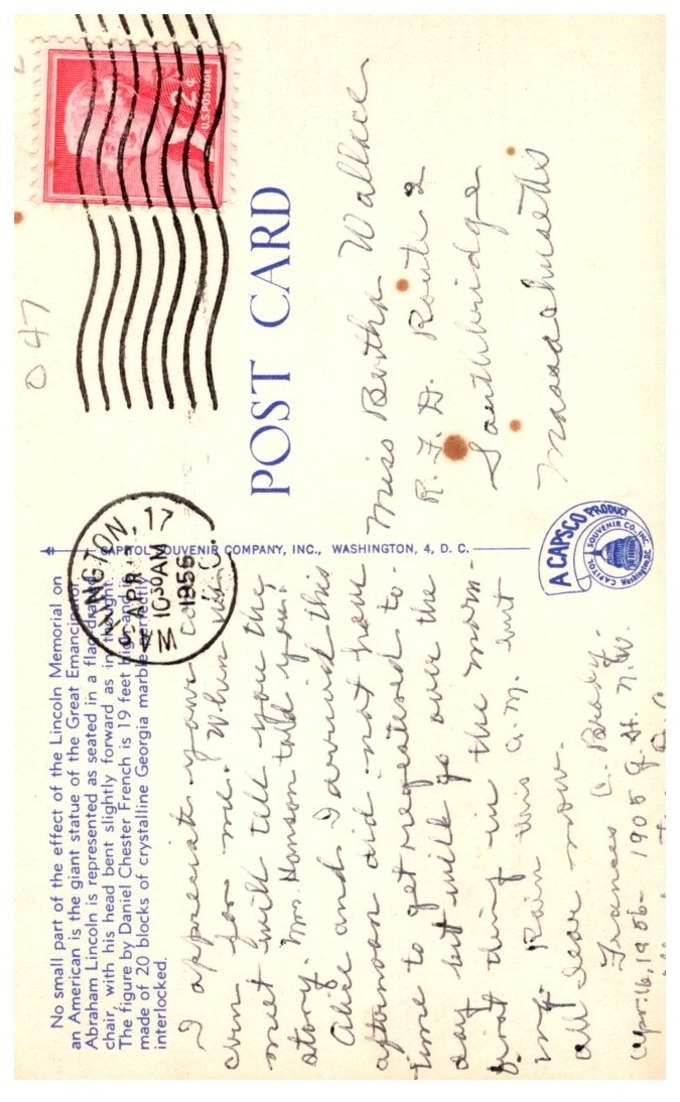 No small part of the effect of the Lincoln Memorial on
an American is the giant statue of the Great Emancipator.
Abraham Lincoln is represented as seated in a flag draped
chair, with his head bent slightly forward as in thought.
The figure by Daniel Chester French is 19 feet high and
made of 20 blocks of crystalline Georgia marble perfectly
interlocked.
I appreciate your con-
cern for me. When we
meet will tell you the
story. Mrs. Hanson told you.
Alice and I arrived this
afternoon did not have
time to get registered to-
day but will go over the
first thing in the morn-
ing. Rain this a.m. but
all clear now.
Frances C. Brady.
Apr. 16, 1956 - 1905 G. St. N.W.
CAPITOL SOUVENIR COMPANY, INC., WASHINGTON, 4, D. C.
NGTON, 17
APR 17
10 30 AM
1956
D.C.
A CAPSCO PRODUCT
CAPITOL SOUVENIR CO. INC.
Washington, D.C.
047
2¢
U.S. POSTAGE
POST CARD
Miss Bertha Wallace
R. F. D. Route 2
Southbridge
Massachusetts